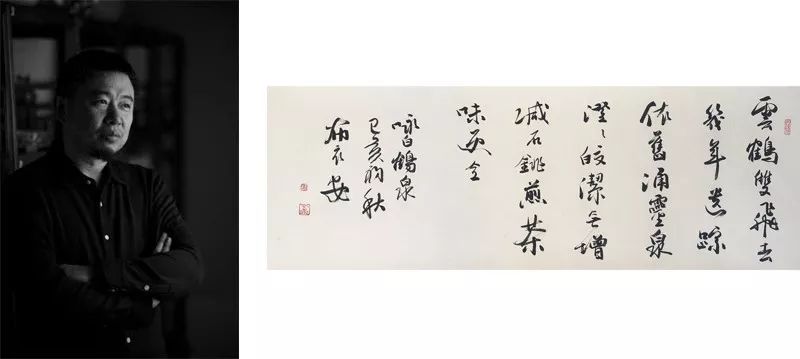 雲鶴雙飛去
幾年遺踪
依舊涌靈泉
澄〻皎潔無增
減石銚煎茶
味更全
詠白鶴泉
己亥初秋
布衣